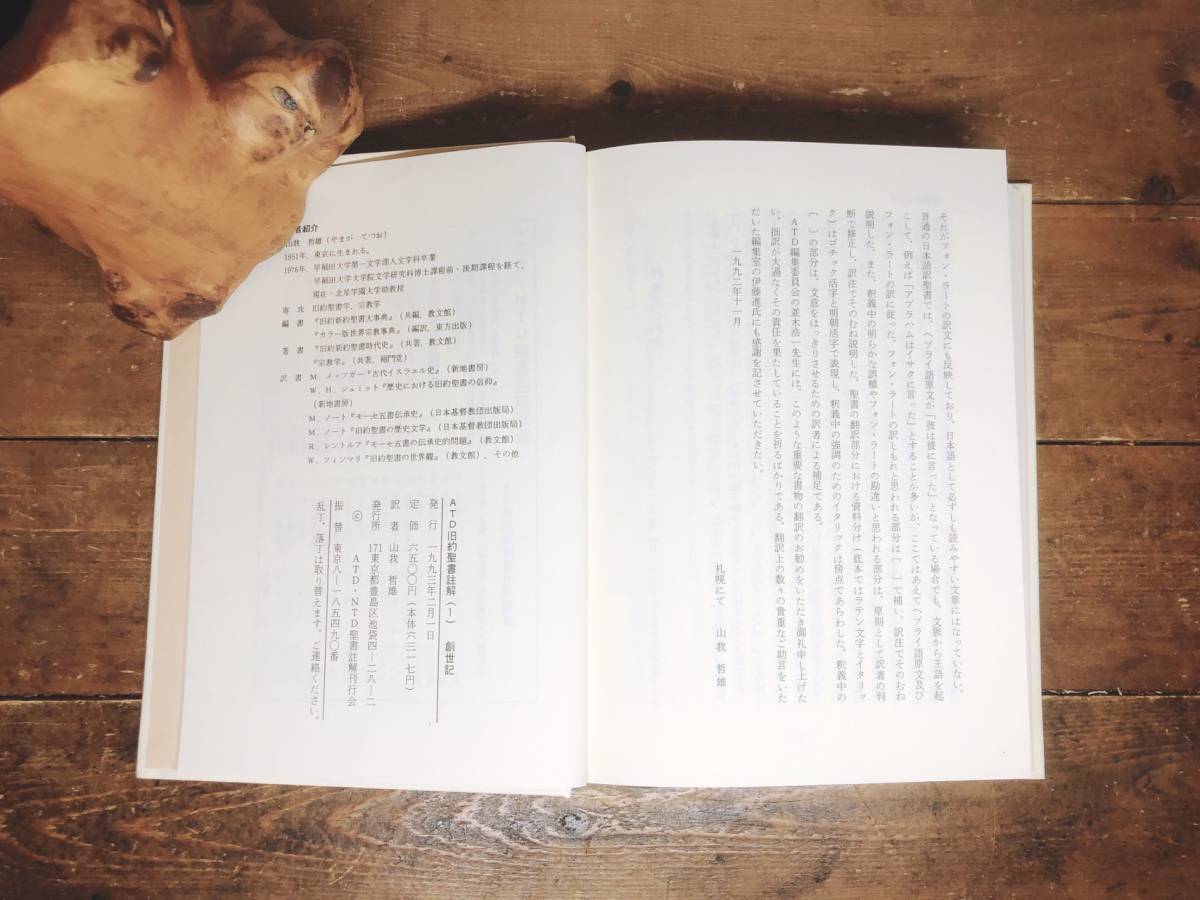 それがフォン・ラートの訳文にも反映しており、日本語として必ずしも読みやすい文章にはなっていない。
普通の日本語訳聖書では、ヘブライ語原文が「彼は彼に言った」となっている場合でも、文脈から主語を起
こして、例えば「アブラハムはイサクに言った」とすることが多いが、ここではあえてヘブライ語原文及び
フォン・ラートの訳に従った。フォン・ラートの訳しもれと思われる部分は〔　〕で補い、訳注でそのむね
説明した。また、釈義中の明らかな誤植やフォン・ラートの勘違いと思われる部分は、原則として訳者の判
断で修正し、訳注でそのむね説明した。聖書の翻訳部分における資料分け（底本ではラテン文字とイタリッ
ク）はゴチック活字と明朝活字で表現し、釈義中の強調のためのイタリックは傍点であらわした。釈義中の
〔　〕の部分は、文意をはっきりさせるための訳者による補足である。
ＡＴＤ編集委員会の並木浩一先生には、このような重要な書物の翻訳のお勧めをいただき御礼申し上げた
い。拙訳が大過なくその責任を果たしていることを祈るばかりである。翻訳上の数々の貴重なご助言をいた
だいた編集室の伊藤進氏にも感謝を記させていただきたい。
一九九二年十一月
札幌にて　山我　哲雄
者紹介
山我　哲雄（やまが　てつお）
1951年、東京に生まれる。
1976年、早稲田大学第一文学部人文学科卒業
早稲田大学大学院文学研究科博士課程前・後期課程を経て、
現在・北星学園大学助教授
専攻　旧約聖書学、宗教学
編書　『旧約新約聖書大事典』（共編、教文館）
『カラー版世界宗教事典』（編訳、東方出版）
著書　『旧約新約聖書時代史』（共著、教文館）
『宗教学』（共著、稲門堂）
訳書　Ｍ．メッツガー『古代イスラエル史』（新地書房）
Ｗ．Ｈ．シュミット『歴史における旧約聖書の信仰』
（新地書房）
Ｍ．ノート『モーセ五書伝承史』（日本基督教団出版局）
Ｍ．ノート『旧約聖書の歴史文学』（日本基督教団出版局）
Ｒ．レントルフ『モーセ五書の伝承史的問題』（教文館）
Ｗ．ツィンマリ『旧約聖書の世界観』（教文館）、その他
ＡＴＤ旧約聖書註解（1）　創世記
発行　一九九三年二月一日
定価　六五〇〇円（本体六三一七円）
訳者　山我　哲雄
発行所　171東京都豊島区池袋四―二八―二
©　ＡＴＤ・ＮＴＤ聖書註解刊行会
振替　東京八―一八五四九〇番
乱丁、落丁は取り替えます。ご連絡ください。